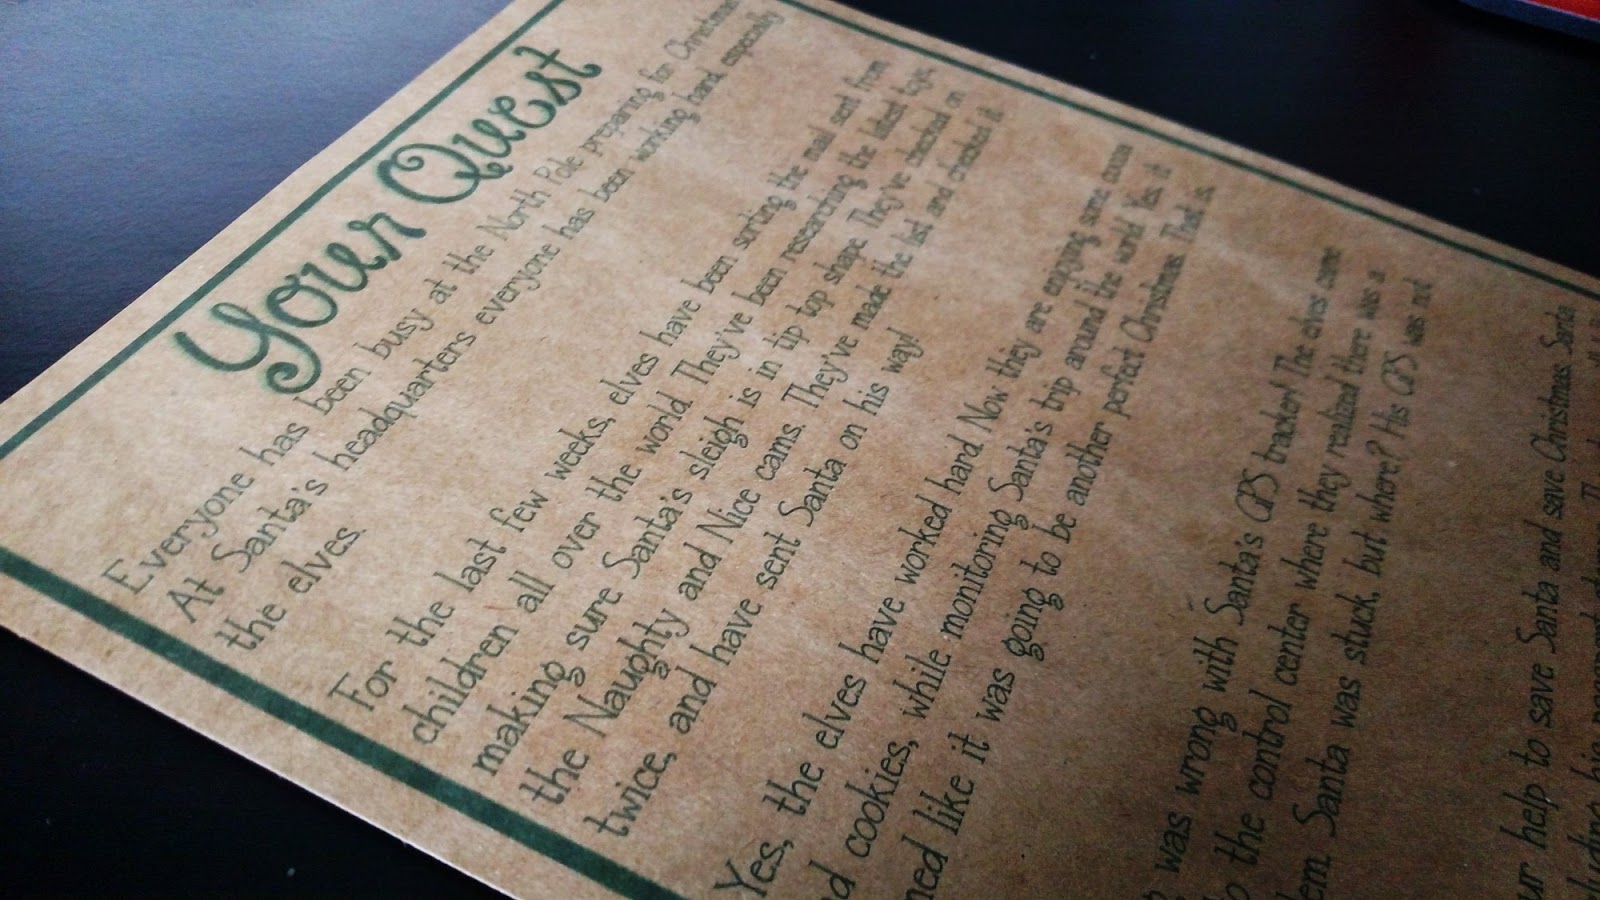 Your Quest
Everyone has been busy at the North Pole preparing for Christmas.
At Santa's headquarters everyone has been working hard, especially
the elves.
For the last few weeks, elves have been sorting the mail sent from
children all over the world. They've been researching the latest toys,
making sure Santa's sleigh is in tip top shape. They've checked on
the Naughty and Nice cams. They've made the list, and checked it
twice, and have sent Santa on his way!
Yes, the elves have worked hard. Now they are enjoying some
cookies, while monitoring Santa's trip around the world. Yes, it
like it was going to be another perfect Christmas. That is,
was wrong with Santa's GPS tracker! The elves came
the control center where they realized there was a
Santa was stuck, but where? His GPS was not
help to save Santa and save Christmas. Santa
his